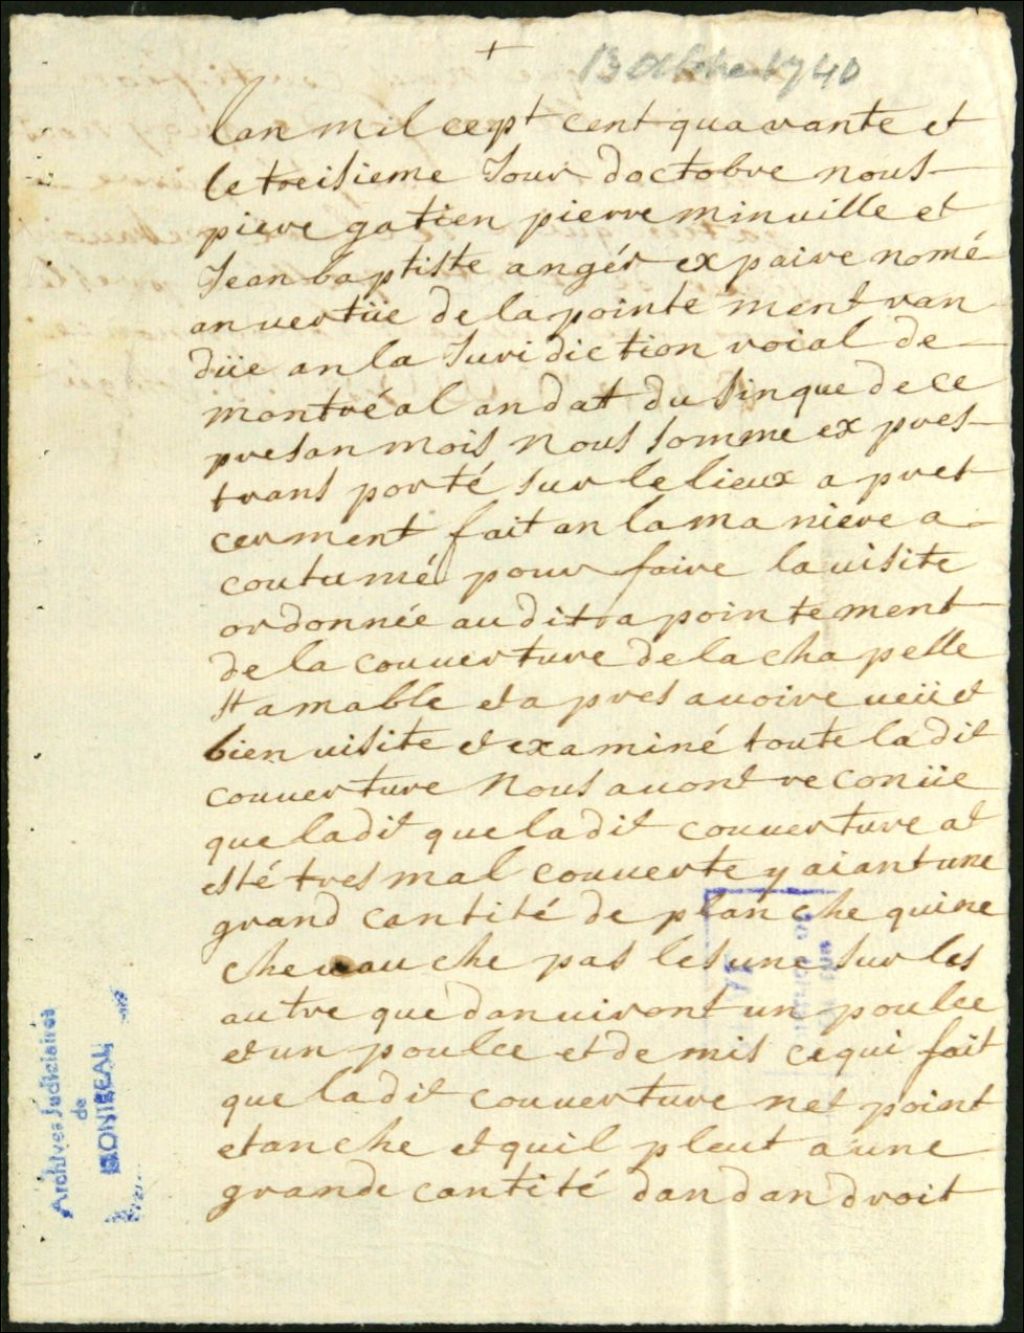 13 octobre 1740
Lan mil cept cent quavante et
le treisieme Jour doctobre nous
piere gatien pierre minville et
Jean baptiste angér expaire nomé
an vertüe de la pointe ment ran
düe an la Juridiction roial de
montréal an datt du sinque de ce
presan mois nous somme ex pres
trans porté sur le lieux a pret
cerment fait an la ma niere a
coutumé pour faire la visite
ordonnée au dit a pointement
de la couverture de la chapelle
st amable et a pres avoire veüe et
bien visite et examiné toute la dit
couverture nous avont re conüe
que la dit que la dit couverture at
esté tres mal couverte y aiant une
grand cantité de planche qui ne
chevauche pas les une sur les
autre que danviront un poulce
et un poulce et de mis ce qui fait
que la dit couverture net point
etanche et quil pleut a une
grande cantité dan dan droit
Archives Judiciaires
de
MONTREAL